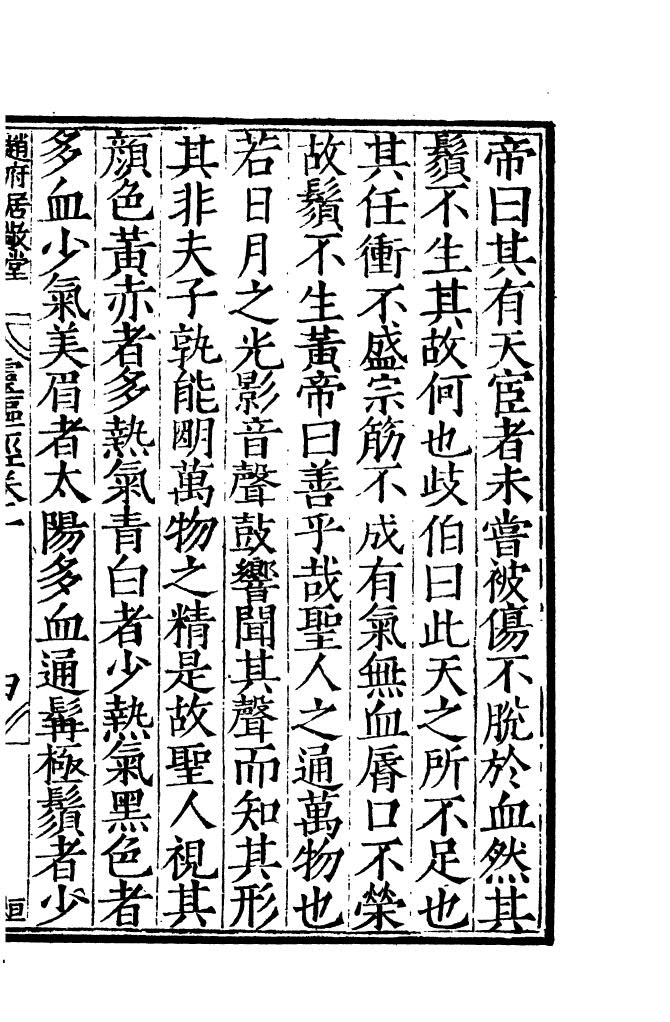 帝曰其有天宦者未嘗被傷不脫於血然其
鬚不生其故何也歧伯曰此天之所不足也
其任衝不盛宗筋不成有氣無血脣口不榮
故鬚不生黃帝曰善乎哉聖人之通萬物也
若日月之光影音聲鼓響聞其聲而知其形
其非夫子孰能明萬物之精是故聖人視其
顔色黃赤者多熱氣青白者少熱氣黑色者
多血少氣美眉者太陽多血通髯極鬚者少
趙府居敬堂